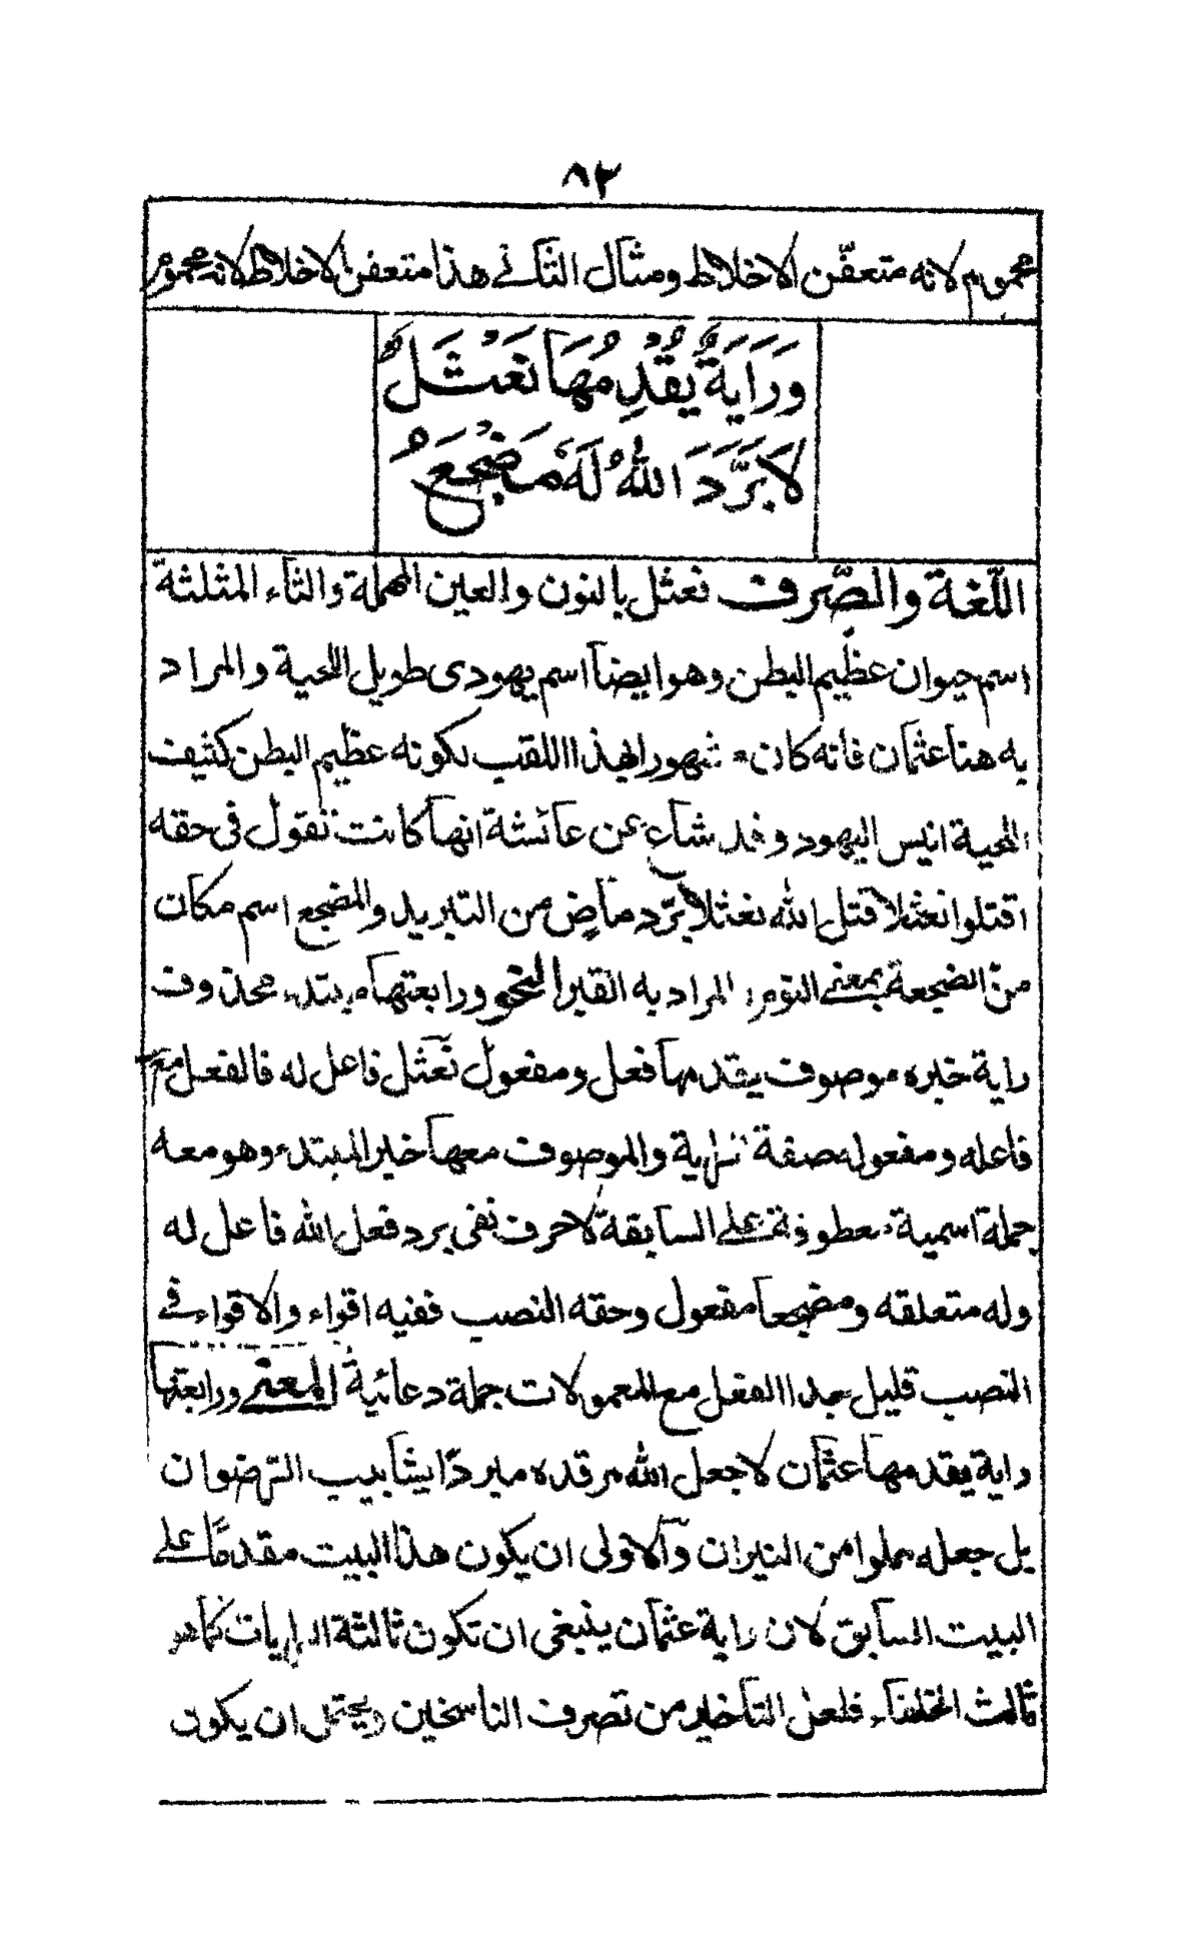 ٨٣
محموم لانه متعفّن الاخلاط ومثال الثانے هذا متعفن الاخلاط لانه محموم
وَرَايَةٌ يُقْدِمُهَا نَعْثَلُ
لَا بَرَّدَ اللهُ لَهُ مَضْجَعُ
اللّغة والصّرف نعثل بالنون والعين المهملة والثاء المثلثة
اسم حيوان عظيم البطن وهو ايضا اسم يهودى طويل اللحية والمراد
به هنا عثمان فانه كان مشهورا بهذا اللقب لكونه عظيم البطن كثيف
اللحية انيس اليهود وقد شاع عن عائشة انها كانت تقول فى حقه
اقتلوا نعثلا قتل الله نعثلا برّد ماضٍ من التبريد والمضجع اسم مكان
من الضجعة بمعنے النوم المراد به القبر النحو ورابعتها مبتدء محذوف
راية خبره موصوف يقدمها فعل ومفعول نعثل فاعل له فالفعل مع
فاعله ومفعوله صفة لراية والموصوف معها خبر المبتدء وهو معه
جملة اسمية معطوفة علے السابقة لا حرف نفى برد فعل الله فاعل له
وله متعلقه ومضجعا مفعول وحقه النصب ففيه اقواء والاقواء فے
النصب قليل جدا الفعل مع المعمولات جملة دعائية المعنے ورابعتها
راية يقدمها عثمان لا جعل الله مرقده مبردًا بشابيب الرضوان
بل جعله مملوا من النيران والاولى ان يكون هذا البيت مقدمًا علے
البيت السابق لان راية عثمان ينبغى ان تكون ثالثة الرايات كما هو
ثالث الخلفاء فلعل التاخير من تصرف الناسخين ويحتمل ان يكون